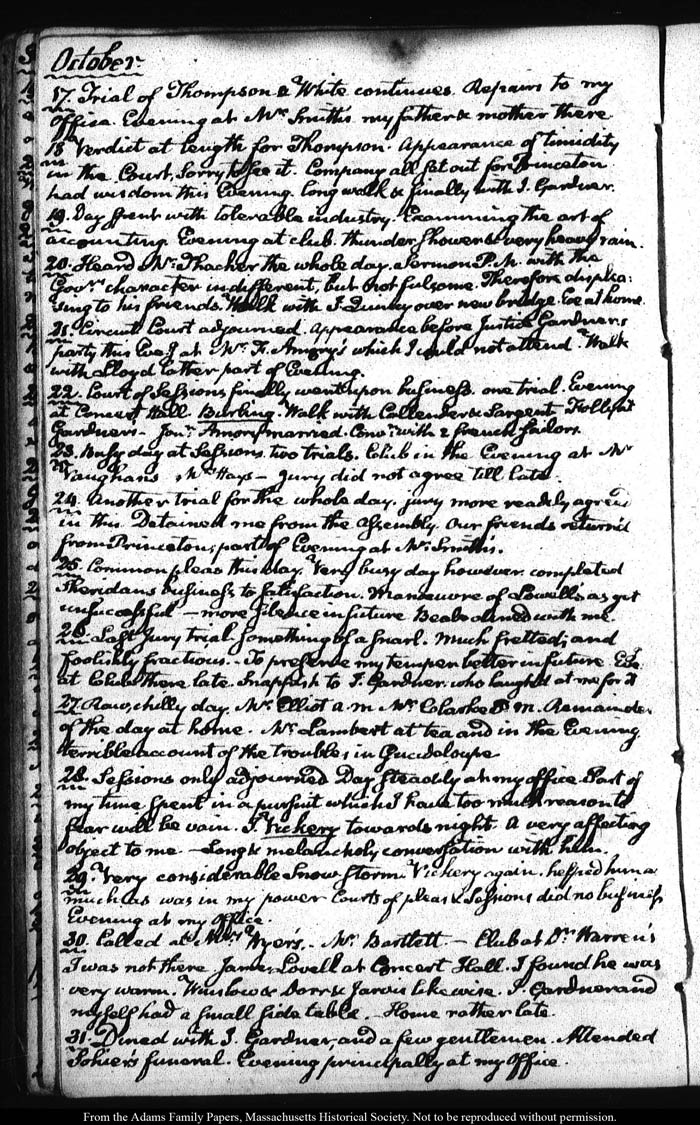 October
17. Trial of Thompson & White continues. Repairs to my
Office. Evening at Mr. Smith's my father & mother there
18. Verdict at length for Thompson. Appearance of timidity
in the Court. Sorry to see it. Company all set out for Princeton
had wisdom this Evening. long walk & finally with J. Gardner.
19. Day spent with tolerable industry. Examining the art of
accounting. Evening at club. thunder shower & very heavy rain.
20. Heard Mr. Thacher the whole day. Sermon P.M. with the
Govrs. character indifferent, but not fulsome. Therefore displea:
sing to his friends. Walk with J. Quincy over new bridge. Eve at home.
21. Circuit Court adjourned. Appearance before Justice Gardner.
party this Eveg at Mr. F. Amory's which I could not attend. Walk
with Lloyd latter part of Evening.
22. Court of Sessions finally went upon business. one trial. Evening
at Concert Hall. Burling. Walk with Callender & Sargent
Gardners. Jonn. Amory married. Convn. with 2 french Sailors.
23. Busy day at Sessions. two trials. Club in the Evening at Mr
Vaughans Mr. Hays — Jury did not agree till late.
24. Another trial for the whole day. jury more readily agreed
in this. Detained me from the Assembly. Our friends return'd
from Princeton; part of Evening at Mr. Smith's.
25. Common pleas this day. Very busy day however. completed
Sheridans business to satisfaction. Manoeuvre of Lowell's as yet
unsuccessful — more silence in future. Beale dined with me.
26. Last Jury trial. something of a snarl. Much fretted; and
foolishly fractious. — To preserve my temper better in future. Eve
at Club. There late. Snappish to J. Gardner. who laughed at me for it
27. Raw, chilly day. Mr. Elliot a.m. Mr. Clarke P.M. Remainder
of the day at home. Mr. Lambert at tea and in the Evening
terrible account of the troubles in Guadeloupe
28. Sessions only adjourned. Day steadily at my office. Part of
my time spent in a pursuit which I have too much reason to
fear will be vain. J. Vickery towards night. A very affecting
object to me. — Long & melancholy conversation with him.
29. Very considerable Snow storm. Vickery again. helped him as
much as was in my power. Courts of pleas & Sessions did no business
Evening at my Office.
30. Called at Mrs. Wyer's. — Mr. Bartlett. — Club at Dr. Warren's
I was not there. James Lovell at Concert Hall. I found he was
very warm. Winslow & Dorr & Jarvis likewise. J. Gardner and
myself had a small side table. — Home rather late.
31. Dined with J. Gardner, and a few gentlemen. Attended
Sohier's funeral. Evening principally at my Office.
From the Adams Family Papers, Massachusetts Historical Society. Not to be reproduced without permission.